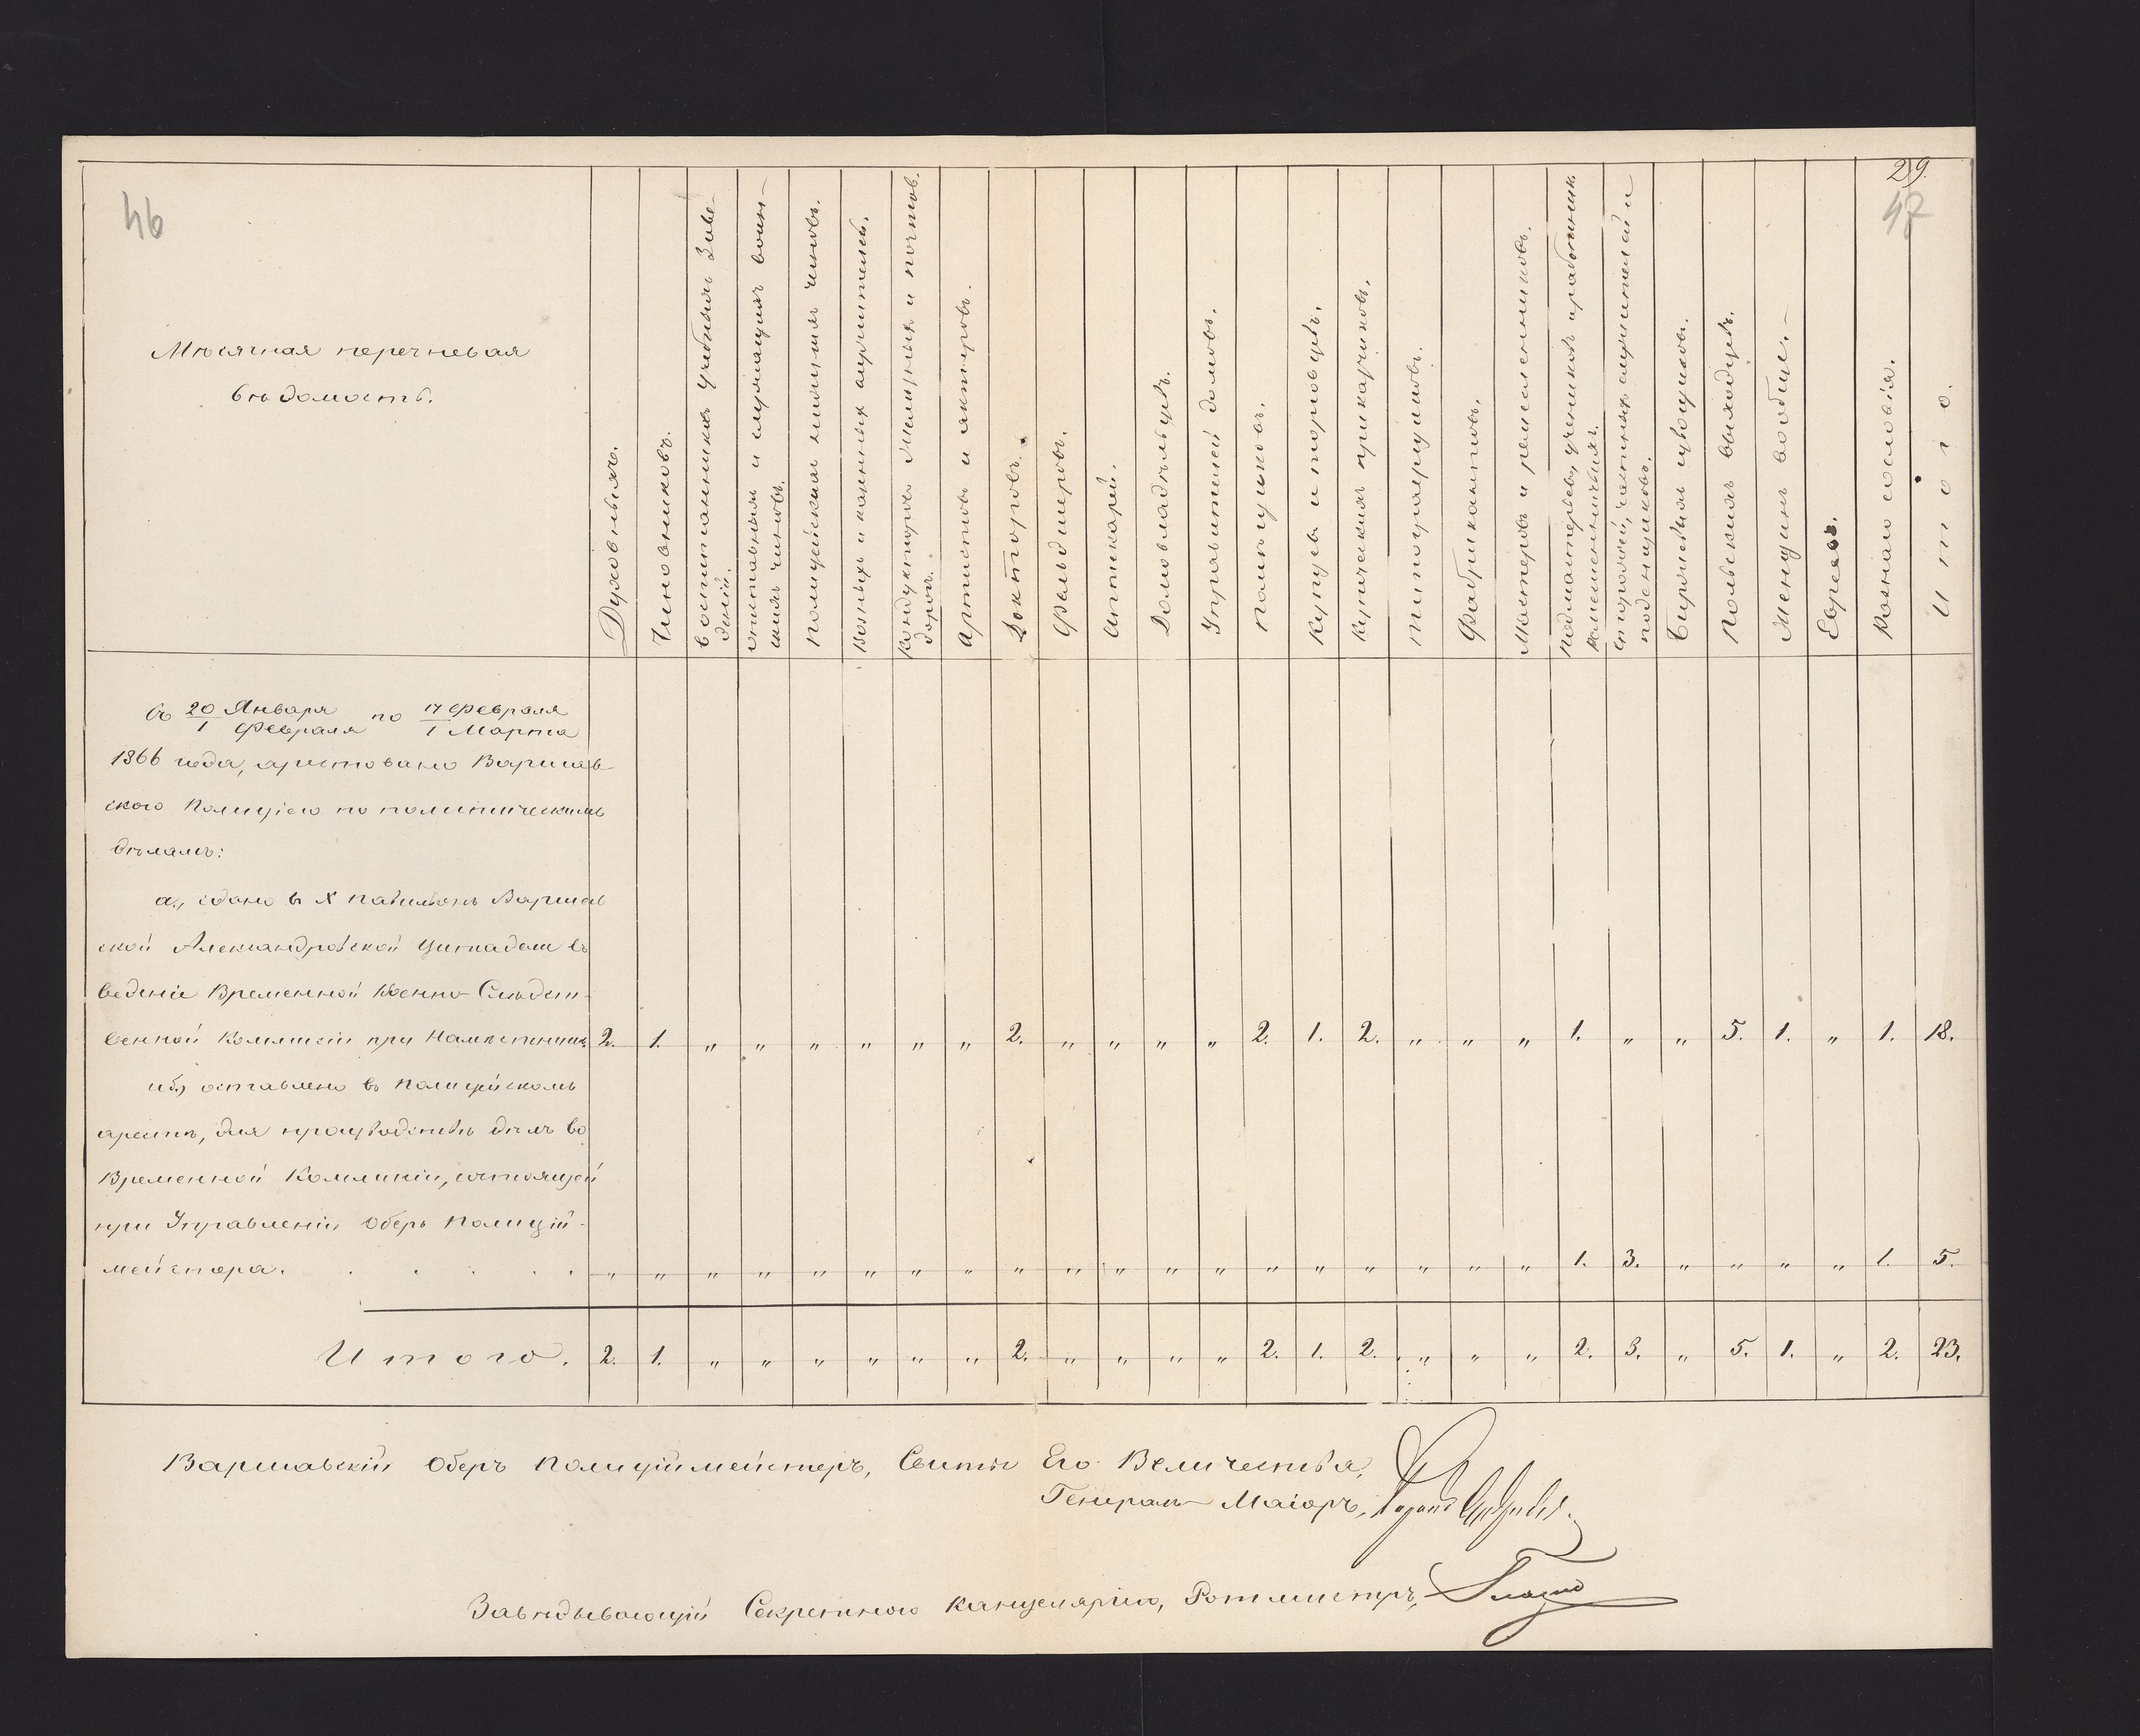 29.
46
47
Мѣсячная перечневая
вѣдомость.
Духовныхъ.
Чиновниковъ.
Воспитанниковъ учебныхъ Заве-
деній.
отставныхъ и служащихъ воин-
скихъ чиновъ.
Полицейскихъ чиновъ.
Вольныхъ и казенныхъ служителей.
Кондукторовъ желѣзныхъ и почтов.
дорогъ.
Артистовъ и актеровъ.
Докторовъ.
Фельдшеровъ.
Аптекарей.
Домовладѣльцевъ.
Управителей домовъ.
Помѣщиковъ.
Купцевъ и торговцевъ.
Купеческихъ прикащиковъ.
Типографщиковъ.
Фабрикантовъ.
Мастеровъ и ремесленниковъ.
Подмастерьевъ, учениковъ и работник.
ремесленничьихъ.
Сторожей, частныхъ служителей и
поденщиковъ.
Польскихъ выходцевъ.
Женщинъ вообще.
Евреевъ.
Разнаго сословія.
Итого.
Съ 20 Января по 17 Февраля
1 Февраля 1 Марта
1866 года, арестовано Варшав
скою Полиціею по политическимъ
дѣламъ:
а., сдано въ X павильонъ Варшав
ской Александровской Цитадели въ
веденіе Временной Военно-Слѣдст-
венной Коммисіи при Намѣстникѣ. 2. 1. „ „ „ „ „ „ 2. „ „ „ „ 2. 1. 2. „ „ „ 1. „ „ 5. 1. „ 1. 18.
и б., оставлено въ полицейскомъ
арестѣ, для производства дѣлъ во
Временной Коммисіи, состоящей
при Управленіи Оберъ Полицій-
мейстера. „ „ „ „ „ „ „ „ „ „ „ „ „ „ „ „ „ „ „ 1. 3. „ „ „ „ 1. 5.
Итого. 2. 1. „ „ „ „ „ „ 2. „ „ „ „ 2. 1. 2. „ „ „ 2. 3. „ 5. 1. „ 2. 23.
Варшавскій Оберъ Полиціймейстеръ, Свиты Его Величества,
Генералъ-Маіоръ,
Завѣдывающій Секретною Канцеляріею, Ротмистръ,